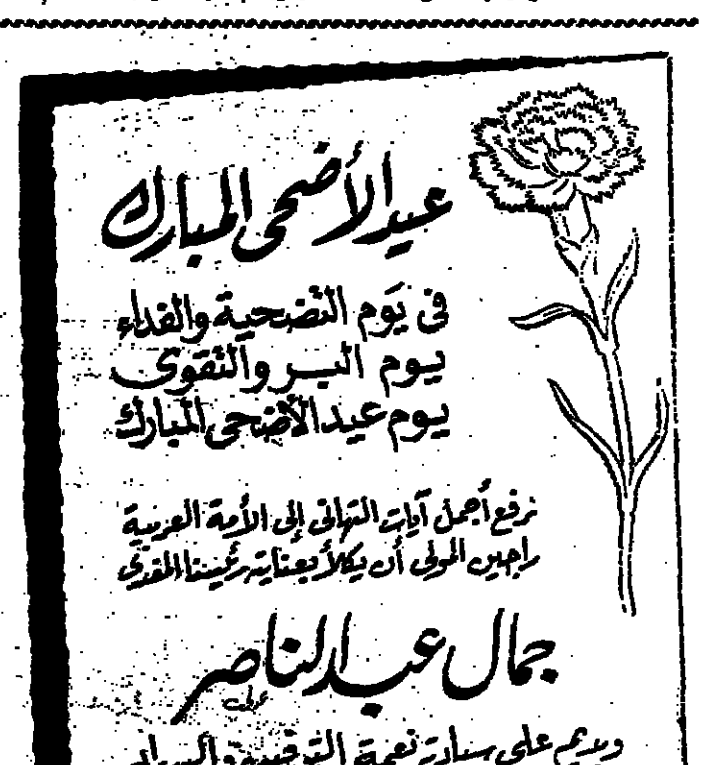 عيد الأضحى المبارك
في يوم التضحية والفداء
يوم البر والتقوى
يوم عيد الأضحى المبارك
نرفع أجمل آيات التهاني إلى الأمة العربية
راجين المولى أن يكلأ بعنايته رئيسنا المفدى
جمال عبد الناصر
ويديم على سيادته نعمة التوفيق والسداد